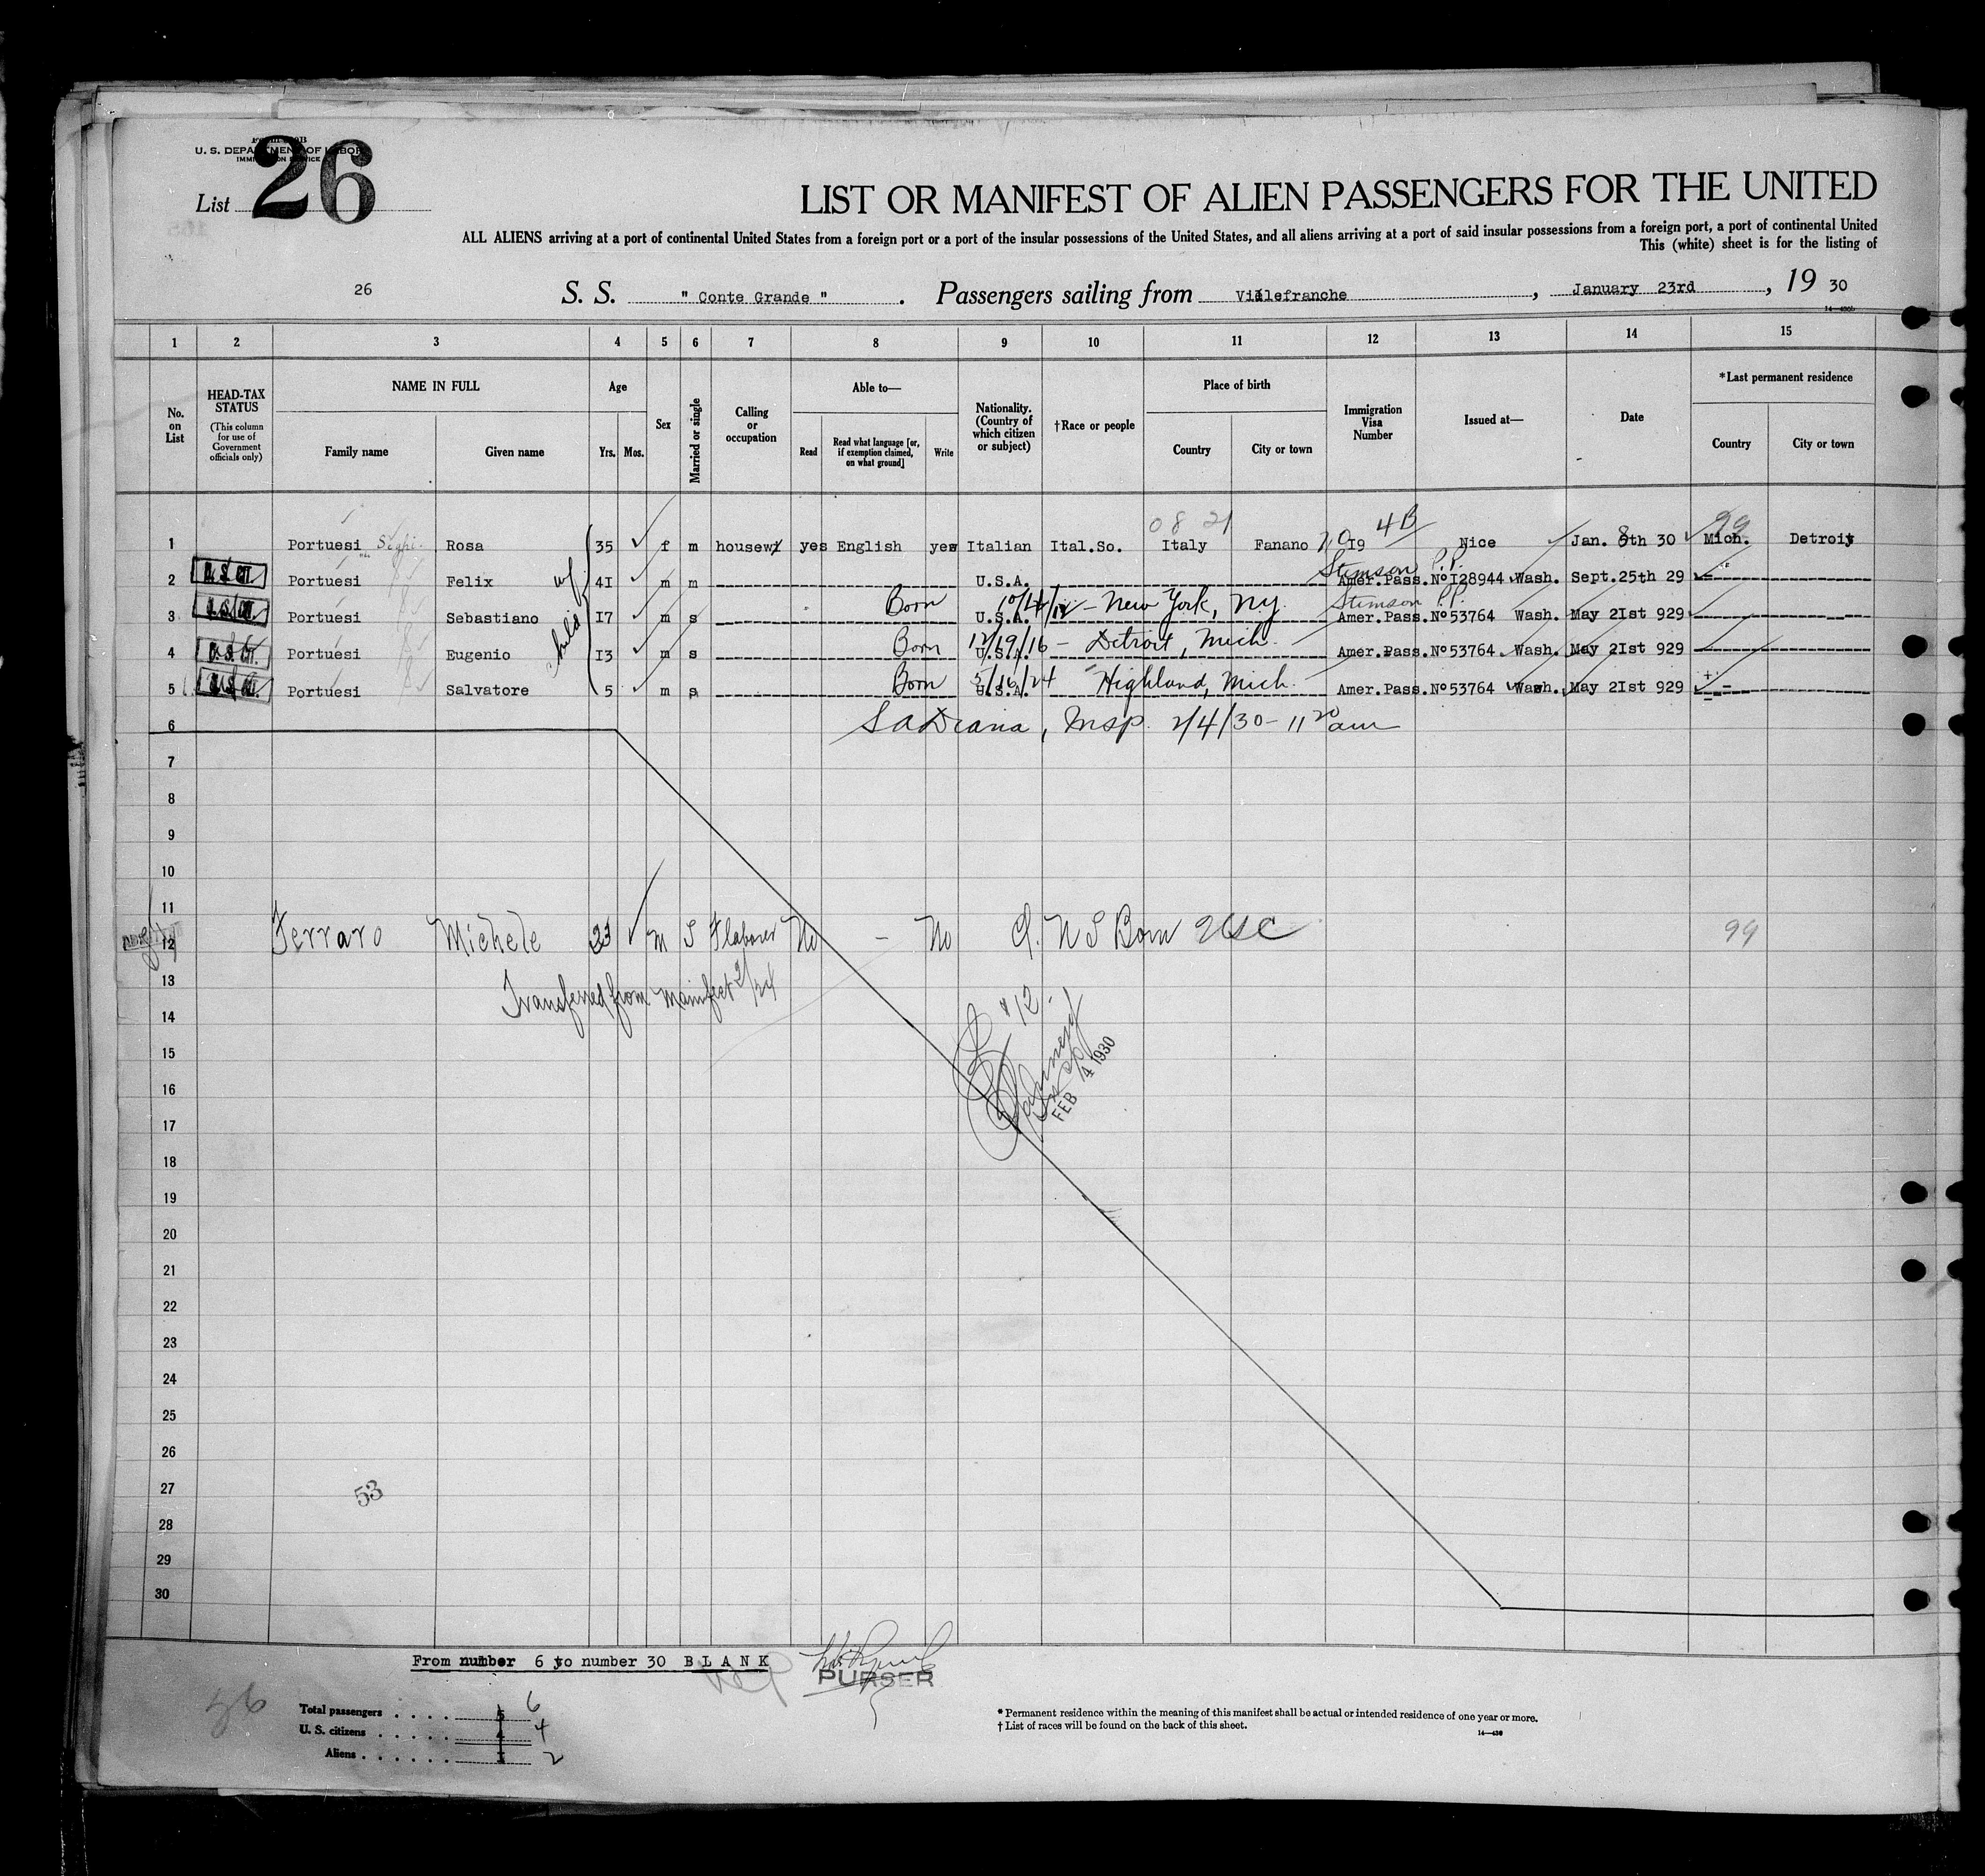 U. S. DEPARTMENT OF LABOR
List 26
LIST OR MANIFEST OF ALIEN PASSENGERS FOR THE UNITED
ALL ALIENS arriving at a port of continental United States from a foreign port or a port of the insular possessions of the United States, and all aliens arriving at a port of said insular possessions from a foreign port, a port of continental United
This (white) sheet is for the listing of
26 S. S. " Conte Grande " . Passengers sailing from Villefranche , January 23rd , 19 30
1 2 3 4 5 6 7 8 9 10 11 12 13 14 15
No. on List
HEAD-TAX STATUS (This column for use of Government officials only)
NAME IN FULL Family name Given name
Age Yrs. Mos.
Sex
Married or single
Calling or occupation
Able to— Read Read what language [or, if exemption claimed, on what ground] Write
Nationality. (Country of which citizen or subject)
†Race or people
Place of birth Country City or town
Immigration Visa Number
Issued at—
Date
*Last permanent residence Country City or town
08 21 4B 99
1 Portuesi Rosa 35 f m housewi yes English yes Italian Ital.So. Italy Fanano I9 Nice Jan. 8th 30 Mich. Detroit
Stimson P.P.
2 U. S. CIT. Portuesi Felix wf 4I m m U.S.A. Amer.Pass.No I28944 Wash. Sept.25th 29
Born 10/4/12 - New York, NY. Stimson P.P.
3 U. S. CIT. Portuesi Sebastiano child I7 m s U.S.A. Amer.Pass.No 53764 Wash. May 2Ist 929
Born 12/19/16 - Detroit, Mich.
4 U. S. CIT. Portuesi Eugenio I3 m s U.S.A. Amer.Pass.No 53764 Wash. May 2Ist 929
Born 5/16/24 Highland, Mich.
5 U. S. CIT. Portuesi Salvatore 5 m s U.S.A. Amer.Pass.No 53764 Wash. May 2Ist 929
6 Insp. 2/4/30 - 11 20 am
7
8
9
10
11
12 Ferraro Michele 23 m S Flaborer No - No Born USC 99
13 Transferred from Manifest 2/24
14 #12
15 FEB 4 1930
16
17
18
19
20
21
22
23
24
25
26
27 53
28
29
30
From number 6 to number 30 B L A N K
PURSER
Total passengers . . . . 5 6
U. S. citizens . . . . . 4 4
Aliens . . . . . . I 2
* Permanent residence within the meaning of this manifest shall be actual or intended residence of one year or more.
† List of races will be found on the back of this sheet.
14—430